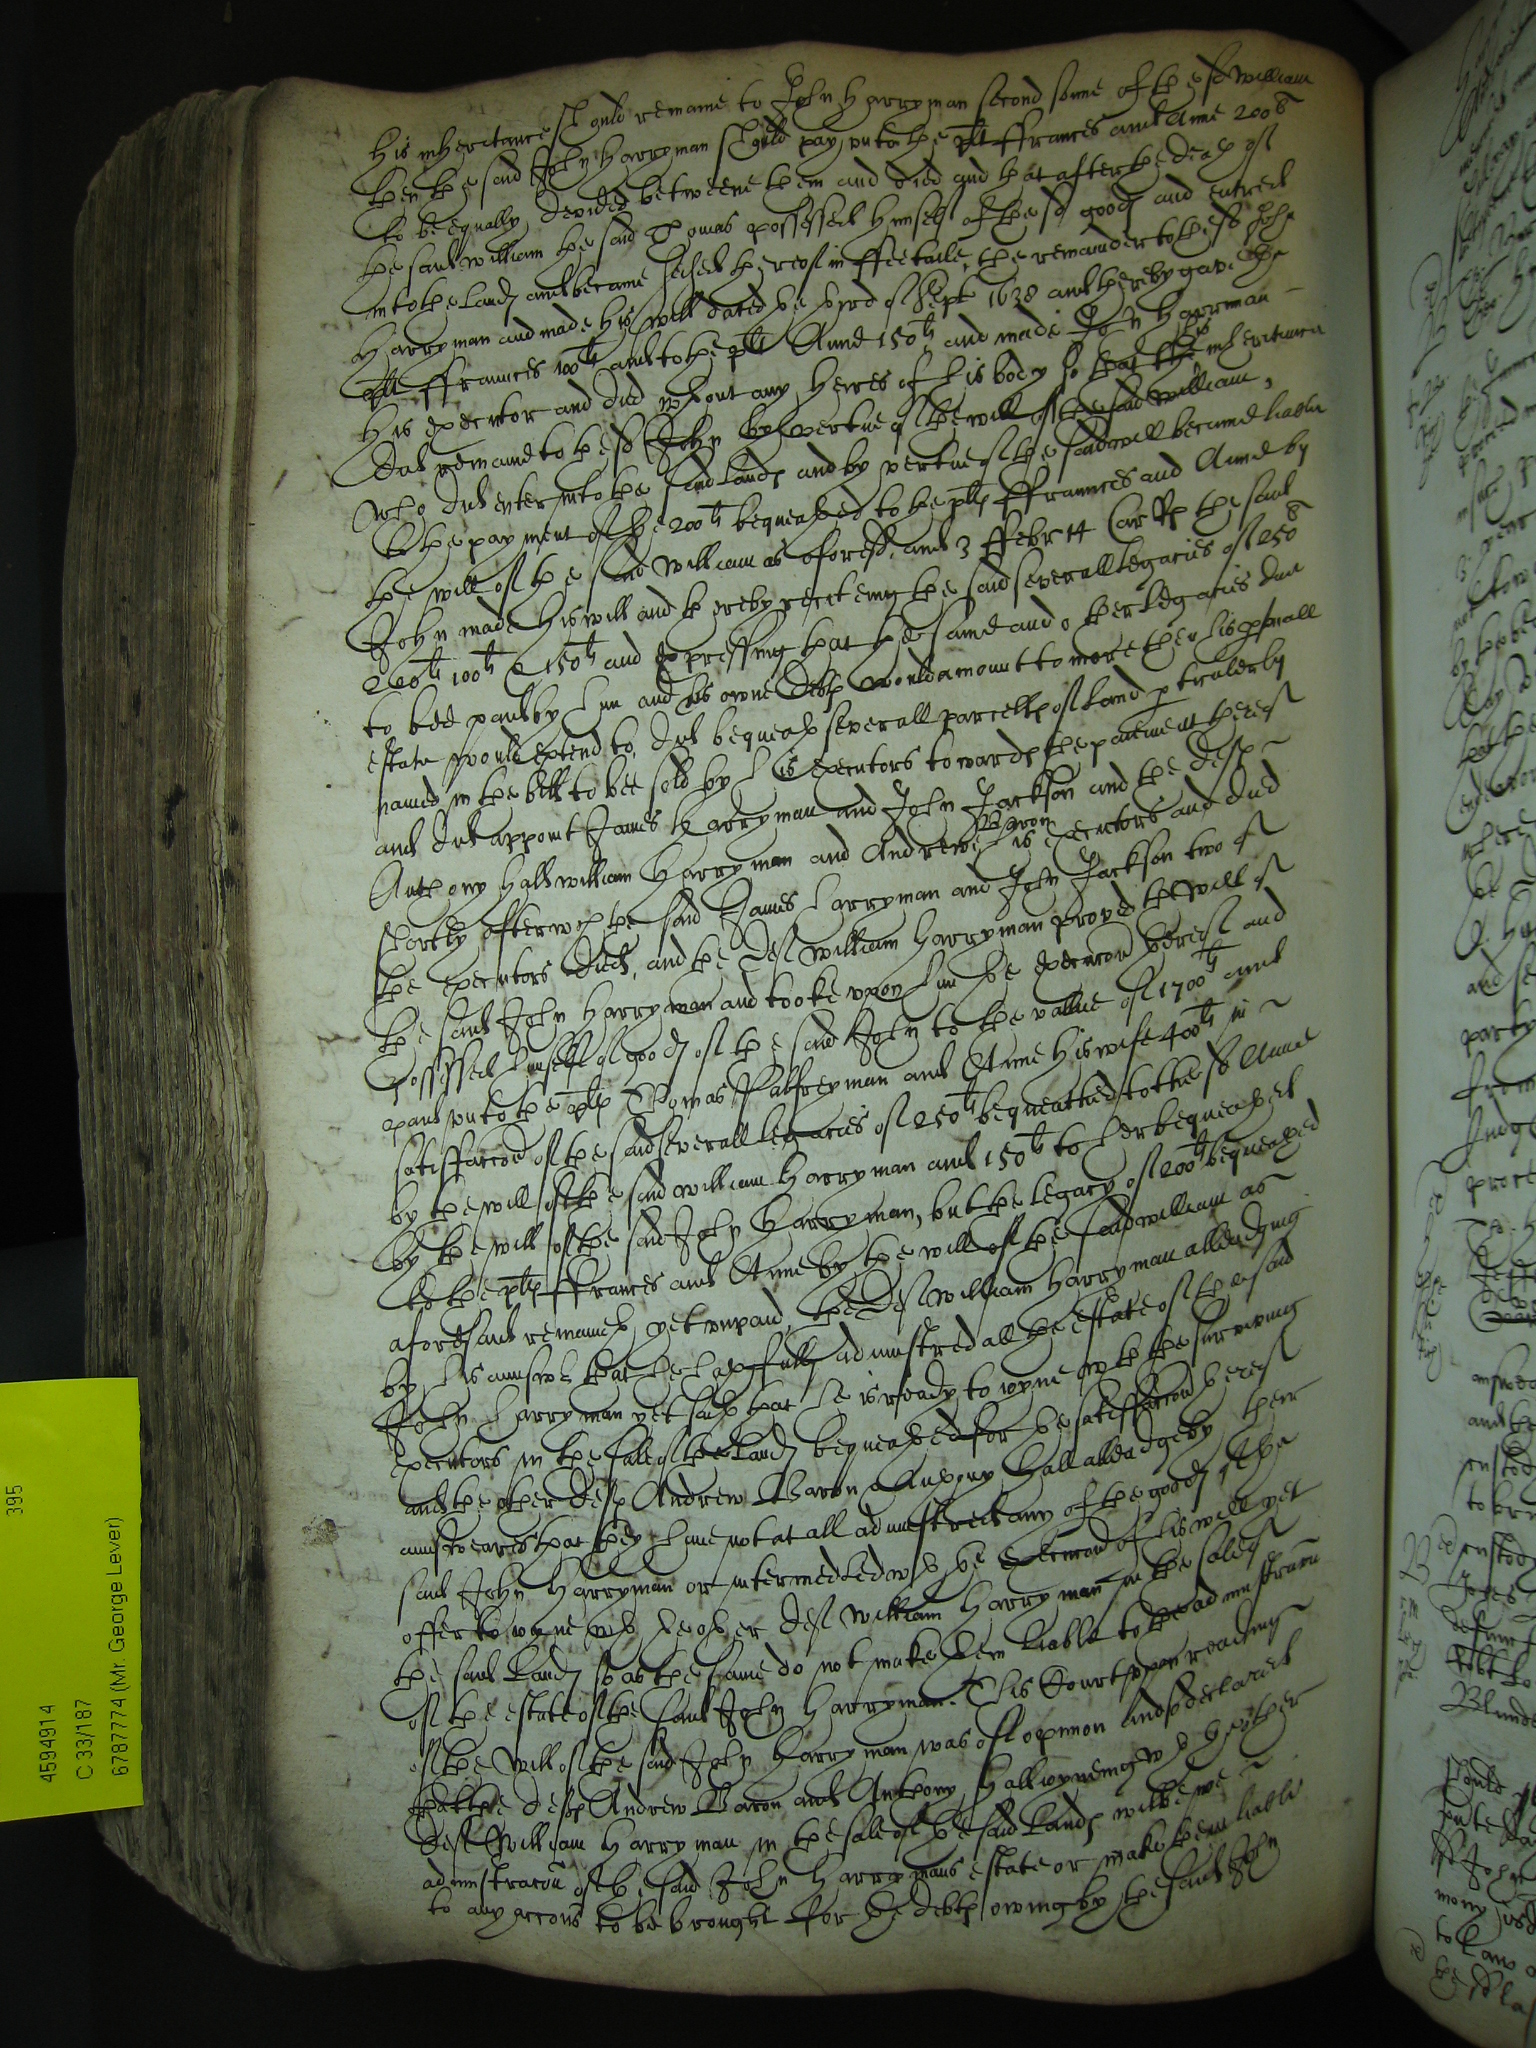 his inheritance should remaine to John Harryman second sonne of the sd William
then the said John Harryman should pay unto the plt ffrances and Anne 200li
to be equally devided betweene them and died and that after the death of
the said William the said Thomas possessed himself of the sd goods and entred
into the Lands and became seised thereof in ffee taile, the remainder to the sd John
Harryman and made his will dated the of Sept 1638 and thereby gave the
plt ffrances 100li and to the plt Anne 150li and made John Harrman
his executor and died wthout any heires of his body so that the inheritance
did remaine to the sd John by vertue of the will of the said William,
who did enter into the said Lands and by vertue of the said will became liable
to the payment of the 200li bequeathed to the plts ffrances and Anne by
the will of the said William as aforesd. and 3 ffebr 14 Car Rs the said
John made his will and thereby reciteing the said severall Legacies of 250li
200li 100li & 150li and expressing that the same and other Legacies due
to bee paid by him and his owne debts would amount to more then his psonall
estate would extend to, did bequeath severall parcells of Land pticulerly
named in the bill to bee sold by his executors towards the paiement thereof
and did appoint James Harryman and John Jackson and the defts
Anthony Hall William Harryman and Andrew Baron his executors and died
shortly after wch the said James Harryman and John Jackson two of
the executors died, and the deft William Harryman proved the will of
the said John Harryman and tooke upon him the execucon thereof and
possessed himself of goods of the said John to the value of 1700li and
paid unto the plts Thomas Palfreyman and Anne his wife 400li in
satisfaccon of the said severall legacies of 250li bequeathed to the sd Anne
by the will of the said William Harryman and 150li to her bequeathed
by the will of the said John Harryman, but the legacy of 200li bequeathed
to the plts ffrances and Anne by the will of the said William as
aforesaid remaineth yet unpaid, the deft William Harryman alleadging
by his answer that he hath fully administred all the estate of the said
John Harryman yet saith that he is ready to ioyne wth the surviving
executors in the sale of the Lands bequeathed for the satisfaccon thereof
and the other defts Andrew Baron & Anthony Hall alleadge by their
answeares that they have not at all administred any of the goods of the
said John Harryman or intermedled wth the execucon of his will yet
offer to ioyne wth the other deft William Harryman in the sale of
the said Lands so as the same do not make them liable to the administracon
of the estate of the said John Harryman. This Court upon reading
of the will of the said John Harryman was of opinion and declared
that the defts Andrew Baron and Anthony Hall ioyneing wth the other
deft William Harryman in the sale of the said Lands will be noe
administracon of the said John Harrymans estate or make them liable
to any accons to be brought for the debts owing by the said John
395
4594914
C 33/187
6787774 (Mr. George Lever)